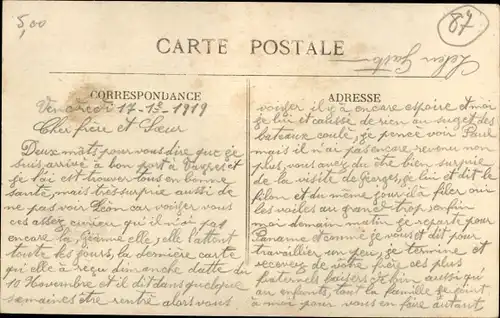 5,00
87
CARTE POSTALE
CORRESPONDANCE
Vendredi 17-1º-1919
Cher frère et Sœur
Deux mots pour vous dire que je
suis arrivé à bon port à et
je lai est trouver tous en bonne
santé, mais tres surprie aussi de
ne pas voir Léon car voyiez vous
ces assez curieu qu'il n'y pas
encore la, Jeanne elle, elle l'attent
toute les jours, la dernière carte
qui elle à reçu dimanche datte du
10 Novembre et il dit dans quelque
semaines être rentré alors vous
ADRESSE
voyiez il y à encore espoire et moi
je lui et de rien au suget des
bateaux coulé, je pence voir Paul
mais il n'ai pas encore revenu non
plus, vous avez du être bien surprie
de la visite de Georges, je lui et dit le
filon et du même jour il à filer oui
les voiles au grand trop enfin
moi demain matin je reparte pour
Paname comme je vous et dit pour
travailler un peu, je termine et
recevez de votre frère ces plus
fraternels baisers ainsi qui
au enfants, tout la famille se joint
à moi pour vous en faire autant